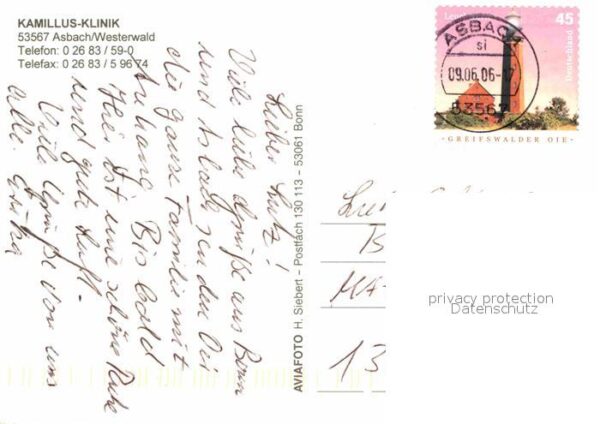 KAMILLUS-KLINIK
53567 Asbach/Westerwald
Telefon: 0 26 83 / 59-0
Telefax: 0 26 83 / 5 96 74
Lieber Lutz!
Viele liebe Grüße aus Bonn
und Asbach an den
die ganze Familie mit
Anhang. Bis bald
Hier ist eine schöne Ruhe
und gute Luft.
Viele Grüße von uns
alle.
AVIAFOTO H. Siebert – Postfach 130 113 – 53061 Bonn
45
Deutschland
ASBACH
si
09.06.06-17
53567
GREIFSWALDER OIE
13
privacy protection
Datenschutz